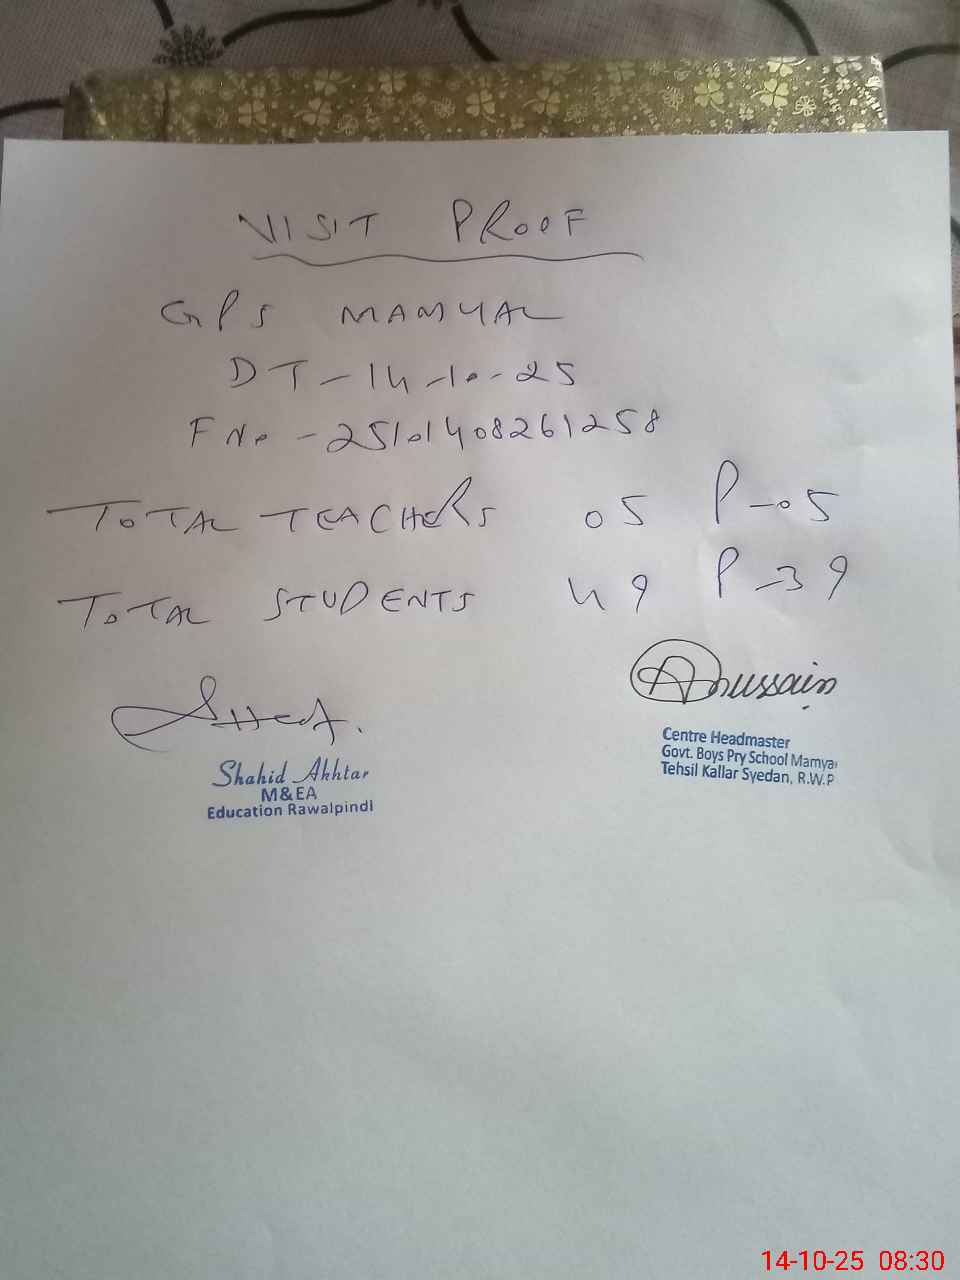 VISIT PROOF
GPS MAMYAL
DT - 14-10-25
F No - 25101408261258
TOTAL TEACHERS 05 P-05
TOTAL STUDENTS 49 P-39
Hussain
Shahid Akhtar
M&EA
Education Rawalpindi
Centre Headmaster
Govt. Boys Pry School Mamyal
Tehsil Kallar Syedan, R.W.P
14-10-25 08:30